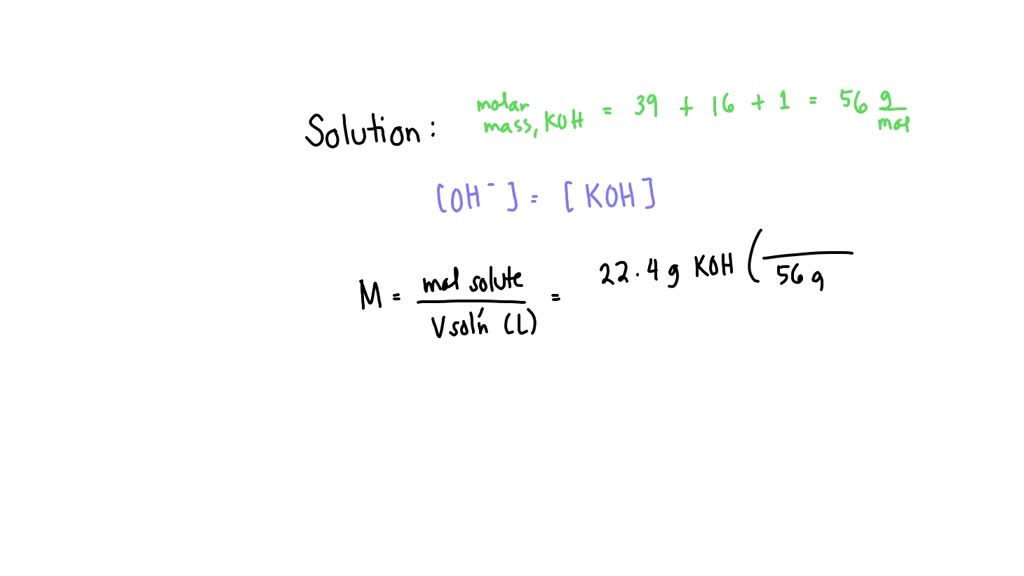 Solution:
molar mass, KOH = 39 + 16 + 1 = 56 g/mol
[OH⁻] = [KOH]
M = mol solute / V sol'n (L) = 22.4 g KOH ( / 56 g